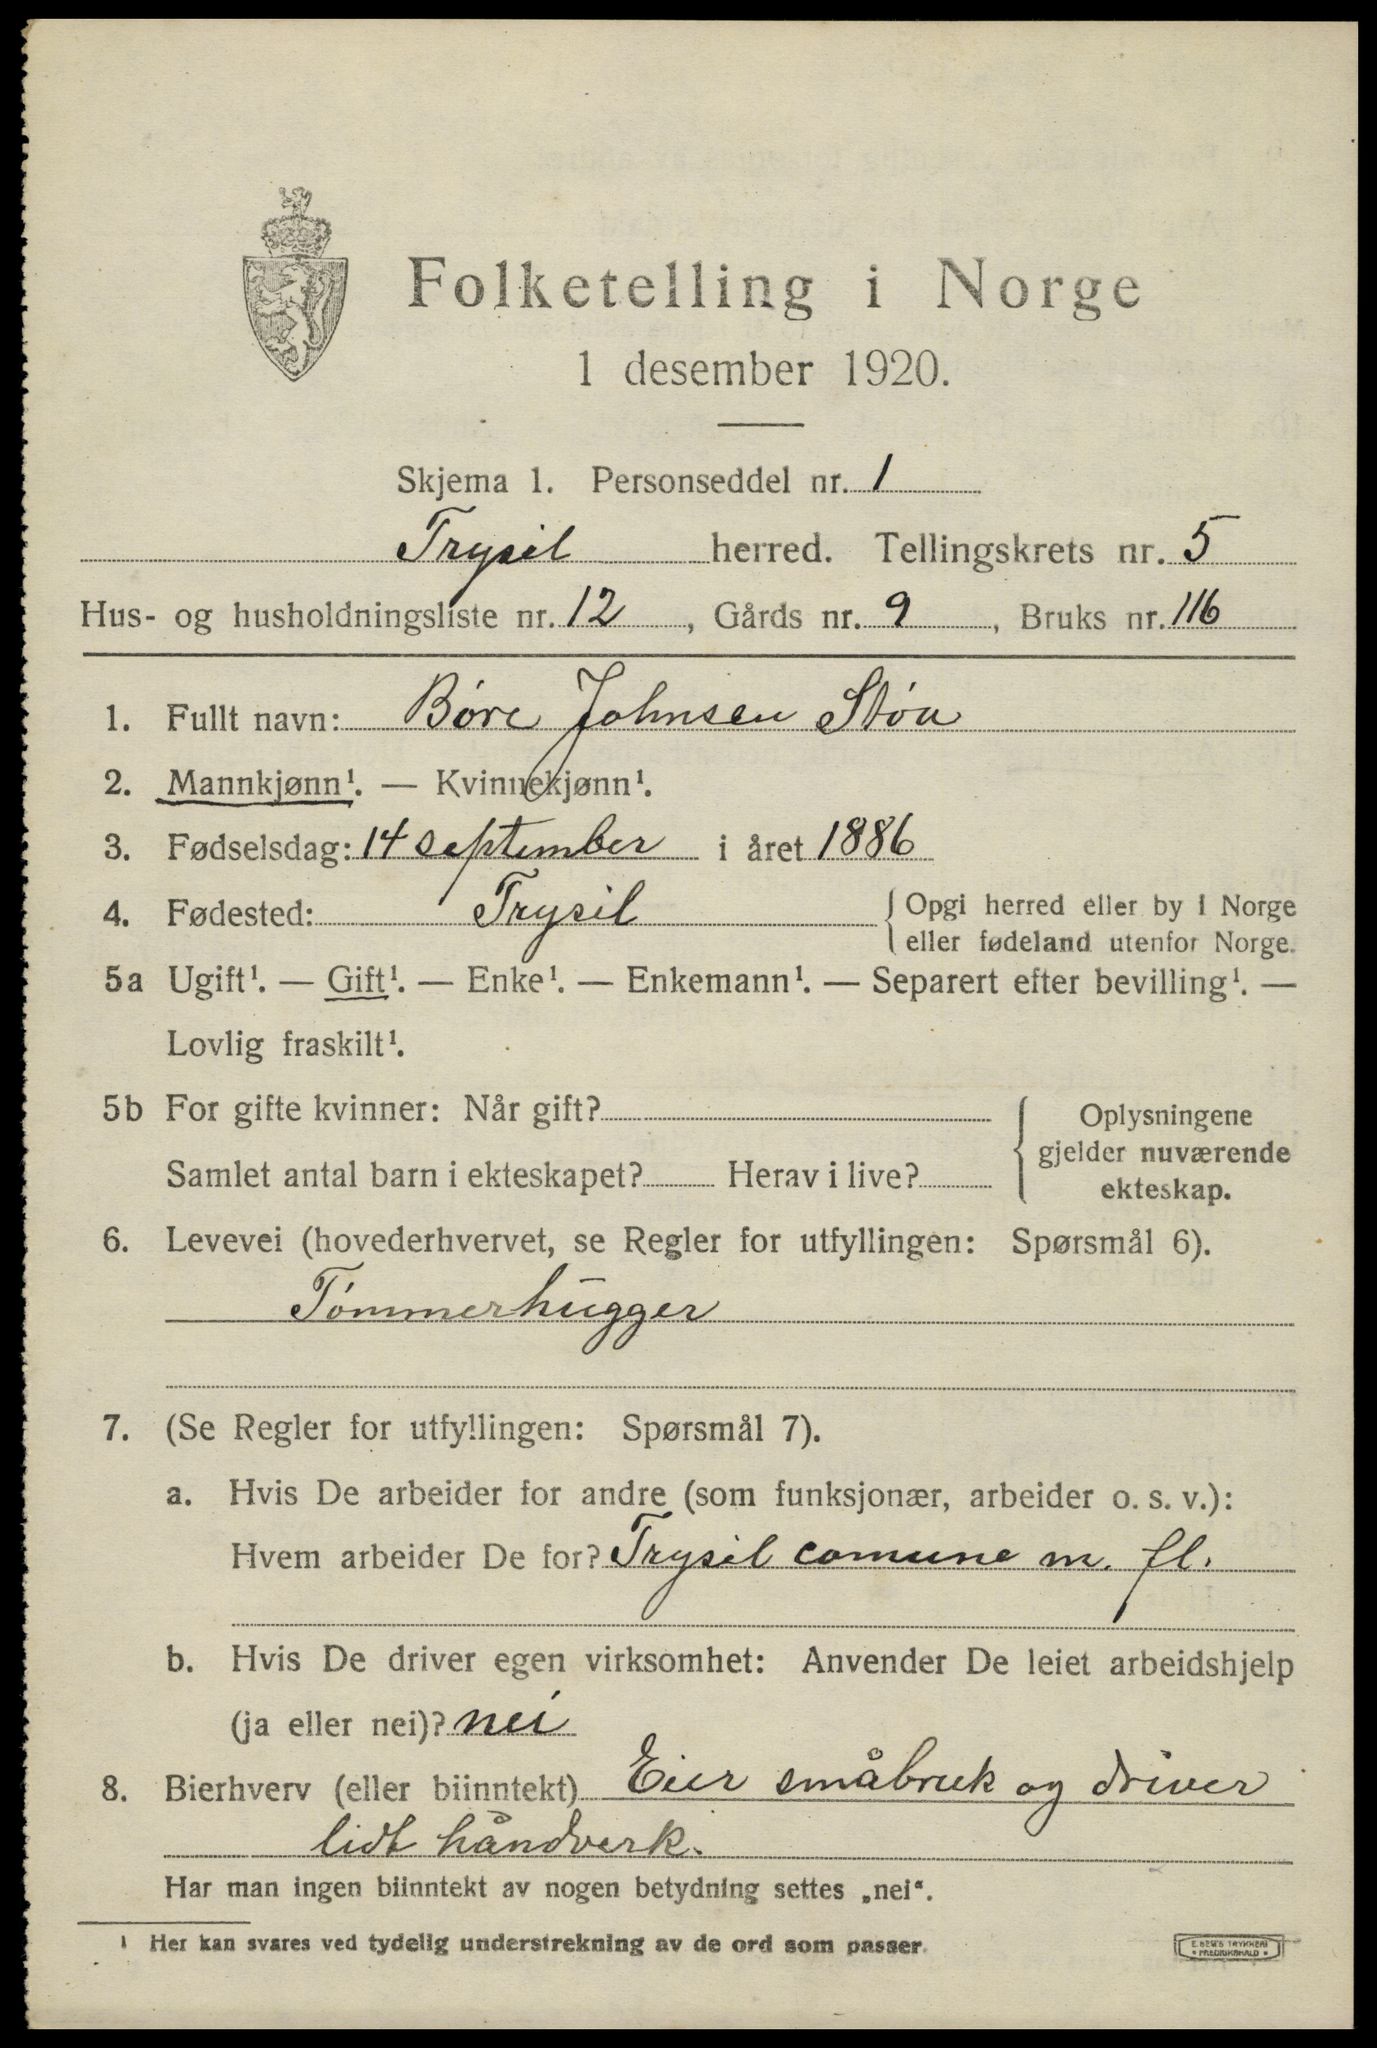 Folketelling i Norge
1 desember 1920.
Skjema 1. Personseddel nr. 1
Trysil herred. Tellingskrets nr. 5
Hus- og husholdningsliste nr. 12, Gårds nr. 9, Bruks nr. 116
1. Fullt navn: Børe Johnsen Støa
2. Mannkjønn¹. — Kvinnekjønn¹.
3. Fødselsdag: 14 september i året 1886
4. Fødested: Trysil { Opgi herred eller by i Norge
eller fødeland utenfor Norge.
5a Ugift¹. — Gift¹. — Enke¹. — Enkemann¹. — Separert efter bevilling¹. —
Lovlig fraskilt¹.
5b For gifte kvinner: Når gift?
Samlet antal barn i ekteskapet? Herav i live?
{ Oplysningene
gjelder nuværende
ekteskap.
6. Levevei (hovederhvervet, se Regler for utfyllingen: Spørsmål 6).
Tømmerhugger
7. (Se Regler for utfyllingen: Spørsmål 7).
a. Hvis De arbeider for andre (som funksjonær, arbeider o. s. v.):
Hvem arbeider De for? Trysil comune m. fl.
b. Hvis De driver egen virksomhet: Anvender De leiet arbeidshjelp
(ja eller nei)? nei
8. Bierhverv (eller biinntekt) Eier småbruk og driver
lidt håndverk.
Har man ingen biinntekt av nogen betydning settes „nei“.
¹ Her kan svares ved tydelig understrekning av de ord som passer.
E. SEM'S TRYKKERI
• FREDRIKSHALD •